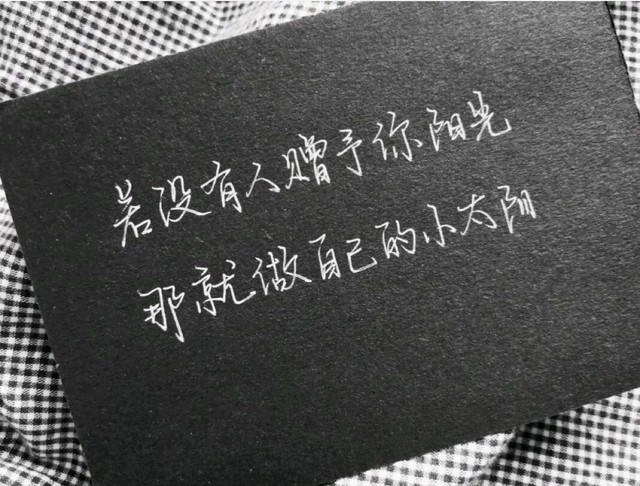 若没有人赠予你阳光
那就做自己的小太阳